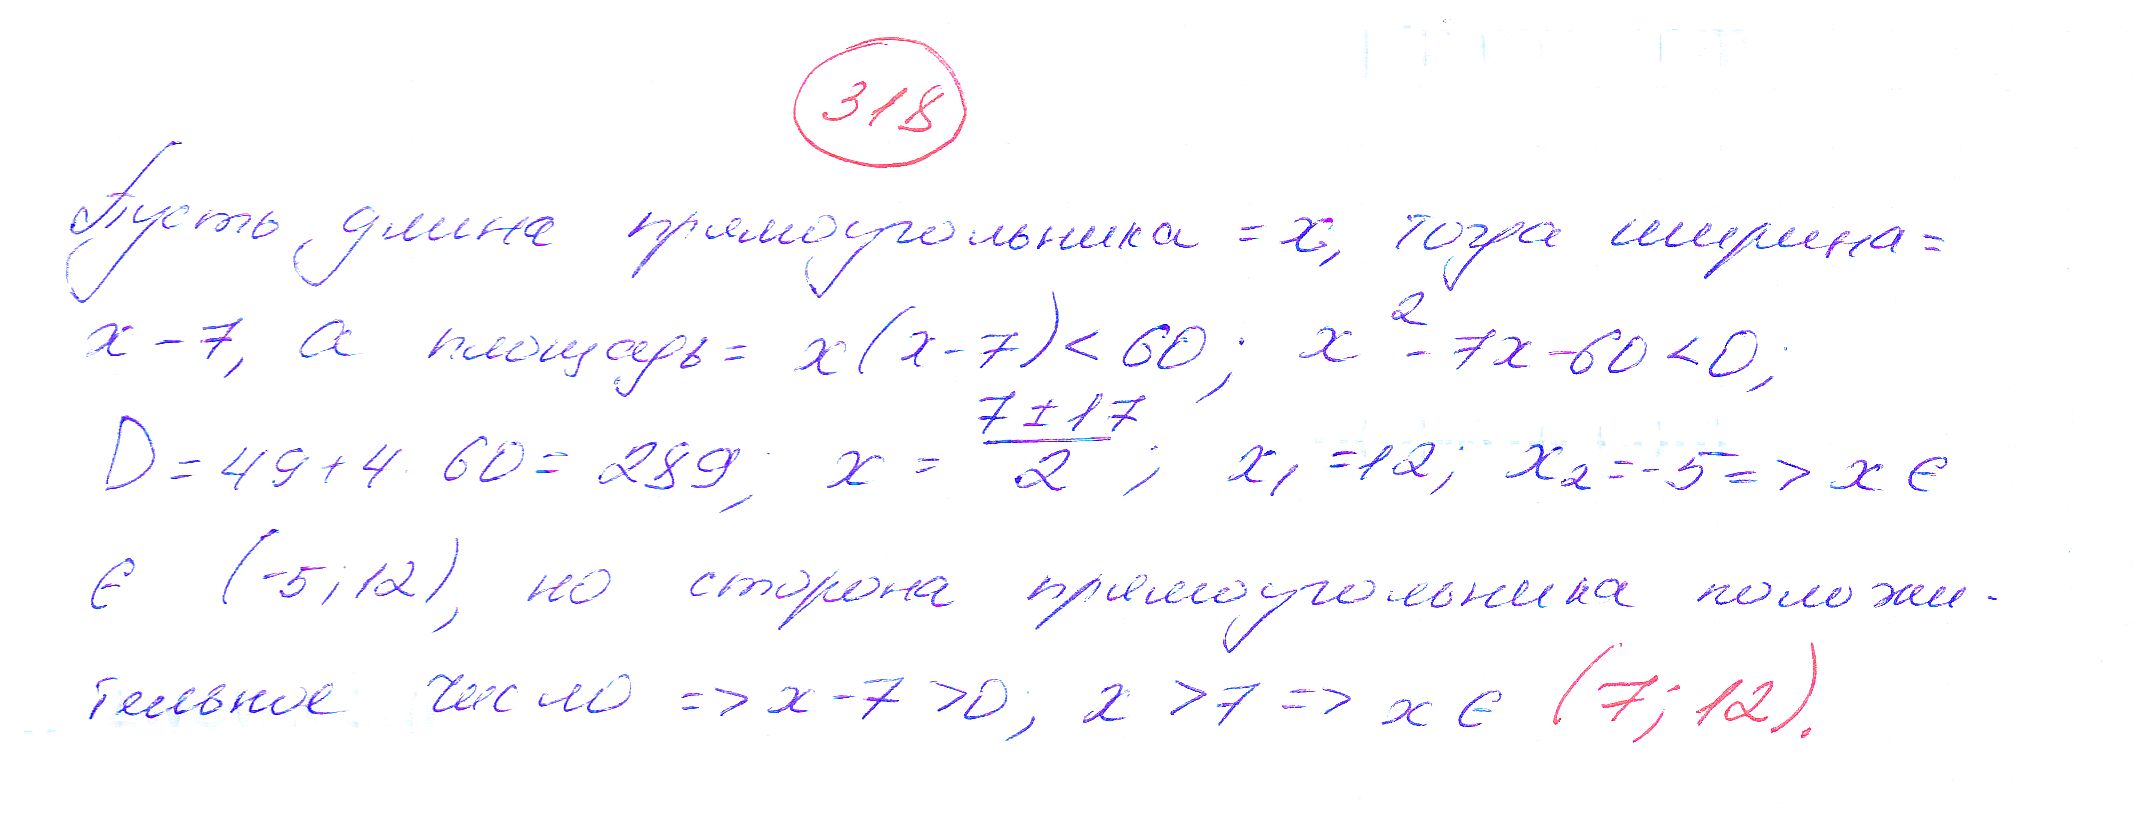 318
Пусть длина прямоугольника = x, тогда ширина =
x - 7, а площадь = x(x-7) < 60; x² - 7x - 60 < 0;
D = 49 + 4·60 = 289; x = (7 ± 17)/2; x₁ = 12; x₂ = -5 => x ∈
∈ (-5; 12), но сторона прямоугольника положи-
тельное число => x - 7 > 0; x > 7 => x ∈ (7; 12).